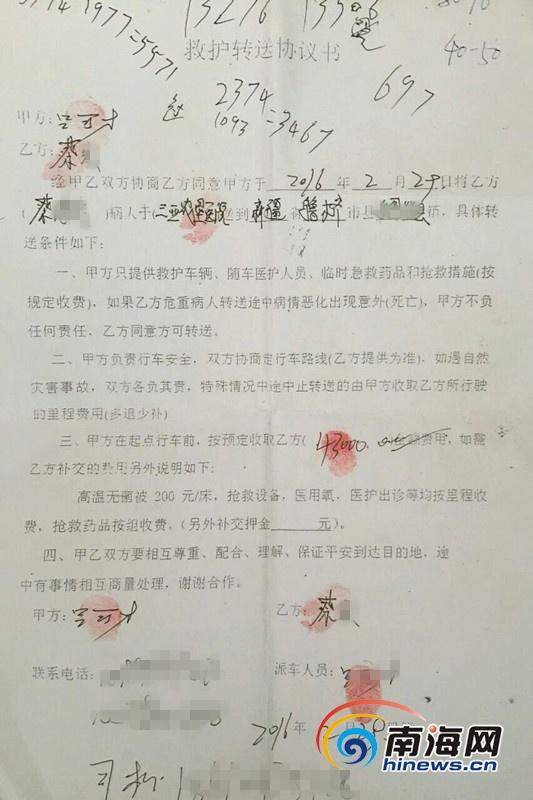 3774 1977=5571
13276
救护转送协议书
40-50
2374
697
1093=3467
甲方:
乙方:蔡
经甲乙双方协商乙方同意甲方于 2016 年 2 月 29 日将乙方
(蔡 )病人于(三亚 医院)送到 新疆 市县 镇,具体转
送条件如下:
一、甲方只提供救护车辆、随车医护人员、临时急救药品和抢救措施(按
规定收费),如果乙方危重病人转送途中病情恶化出现意外(死亡),甲方不负
任何责任,乙方同意方可转送。
二、甲方负责行车安全,双方协商定行车路线(乙方提供为准),如遇自然
灾害事故,双方各负其责,特殊情况中途中止转送的由甲方收取乙方所行驶
的里程费用(多退少补)
三、甲方在起点行车前,按预定收取乙方( 43000. 费用,如需
乙方补交的费用另外说明如下:
高温无菌被 200 元/床,抢救设备,医用氧,医护出诊等均按里程收
费,抢救药品按组收费。(另外补交押金______元)。
四、甲乙双方要相互尊重、配合、理解、保证平安到达目的地,途
中有事情相互商量处理,谢谢合作。
甲方:
乙方:蔡
联系电话:
派车人员:
2016年
司机
南海网
hinews.cn